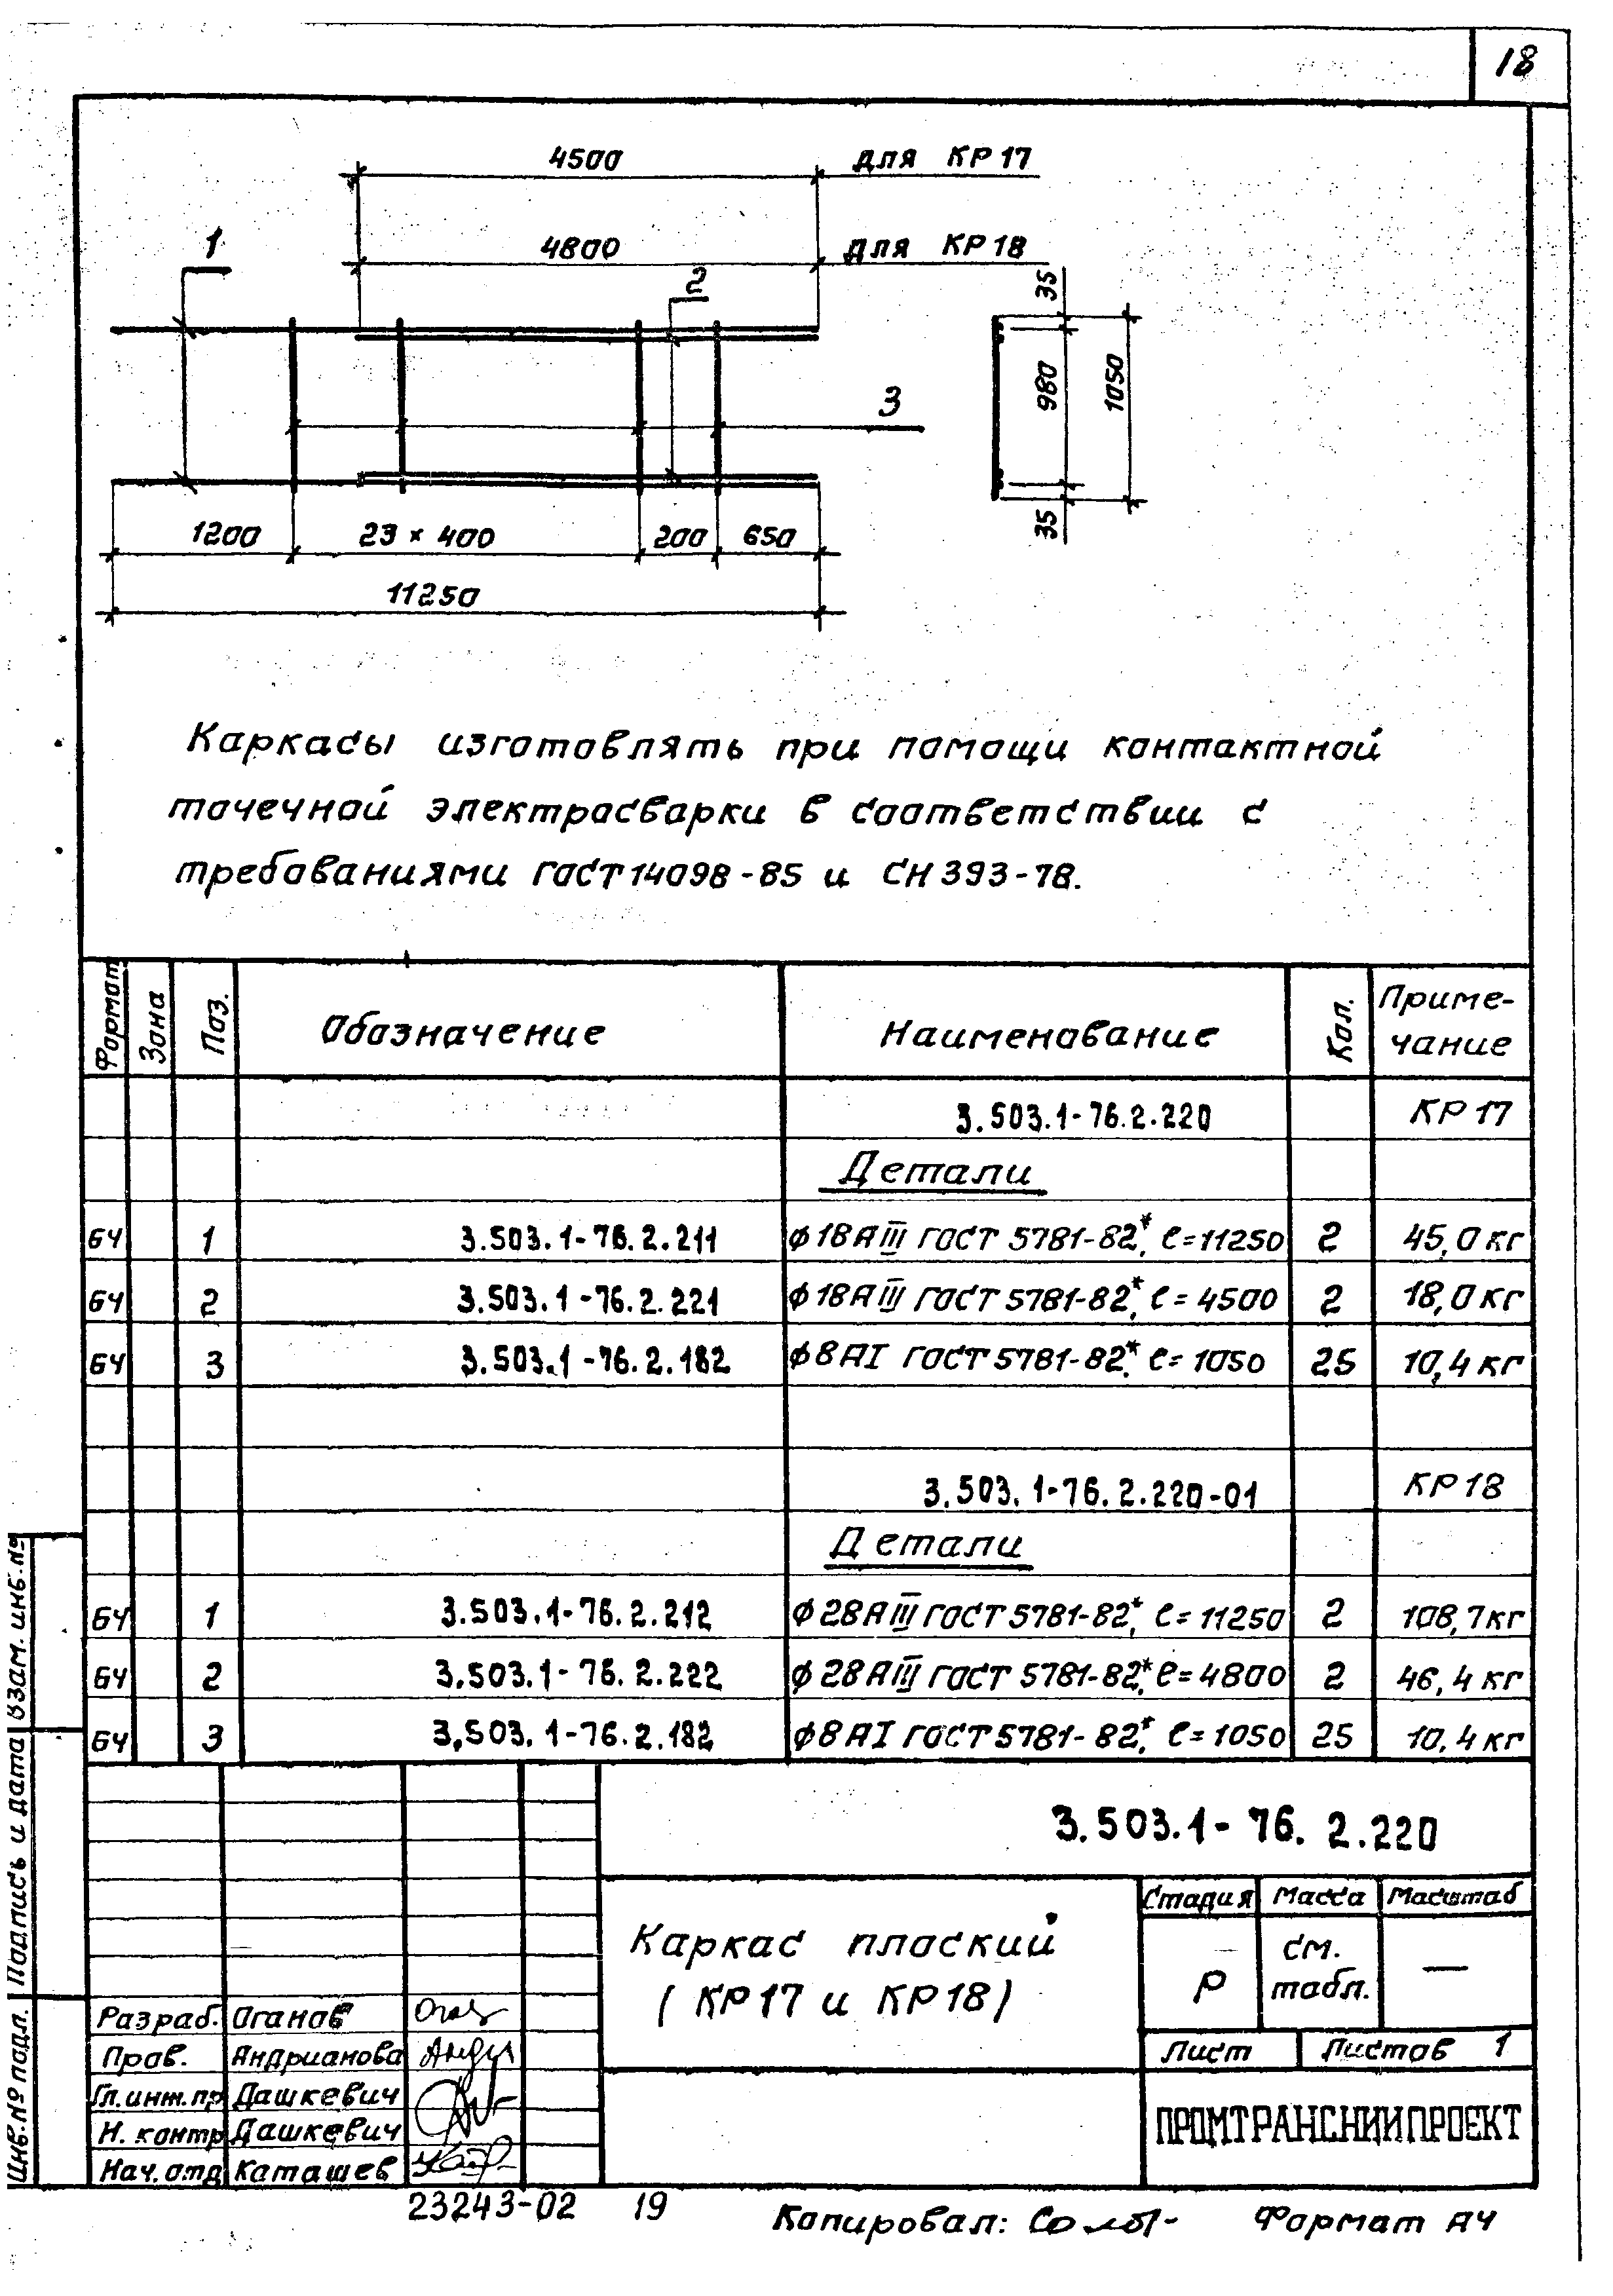 18
4500 для КР17
4800 для КР18
1
2
3
35
980
1050
35
1200 23 × 400 200 650
11250
Каркасы изготовлять при помощи контактной
точечной электросварки в соответствии с
требованиями ГОСТ 14098-85 и СН 393-78.
Формат Зона Поз. Обозначение Наименование Кол. Приме-
чание
3.503.1-76.2.220 КР17
Детали
БЧ 1 3.503.1-76.2.211 ϕ18АIII ГОСТ 5781-82*, ℓ=11250 2 45,0кг
БЧ 2 3.503.1-76.2.221 ϕ18АIII ГОСТ 5781-82*, ℓ=4500 2 18,0кг
БЧ 3 3.503.1-76.2.182 ϕ8АI ГОСТ 5781-82*, ℓ=1050 25 10,4кг
3.503.1-76.2.220-01 КР18
Детали
БЧ 1 3.503.1-76.2.212 ϕ28АIII ГОСТ 5781-82*, ℓ=11250 2 108,7кг
БЧ 2 3.503.1-76.2.222 ϕ28АIII ГОСТ 5781-82*, ℓ=4800 2 46,4кг
БЧ 3 3.503.1-76.2.182 ϕ8АI ГОСТ 5781-82*, ℓ=1050 25 10,4кг
Взам. инв. №
Подпись и дата
Инв. № подл.
3.503.1-76.2.220
Каркас плоский
(КР17 и КР18)
Стадия Масса Масштаб
Р см. —
табл.
Лист Листов 1
ПРОМТРАНСНИИПРОЕКТ
Разраб. Оганов
Пров. Андрианова
Гл.инж.пр Дашкевич
Н. контр Дашкевич
Нач.отд Каташев
23243-02 19
Копировал: Формат А4